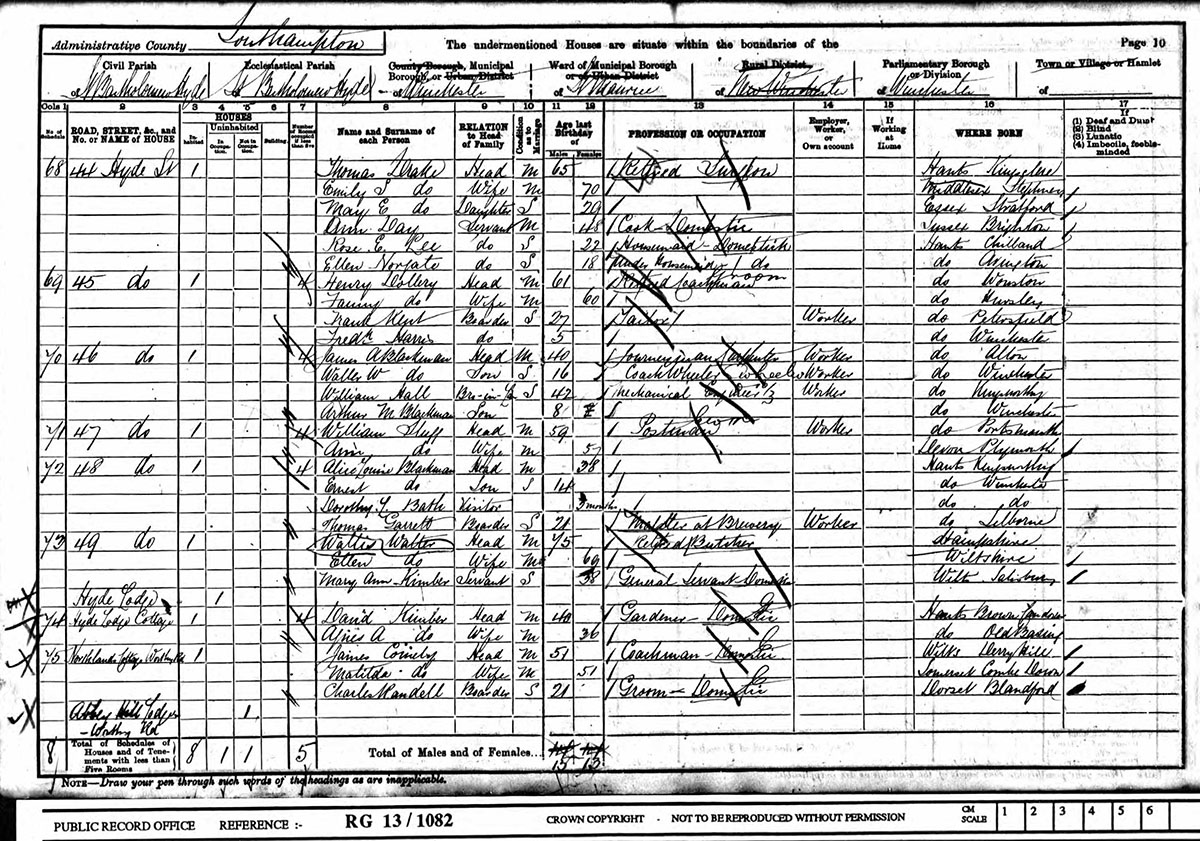 Administrative County Southampton The undermentioned Houses are situate within the boundaries of the Page 10
Civil Parish Ecclesiastical Parish County Borough, Municipal Borough, or Urban District Ward of Municipal Borough or of Urban District Rural District Parliamentary Borough or Division Town or Village or Hamlet
of St Bartholomew Hyde of St Bartholomew Hyde of Winchester of St Maurice of of Winchester of
Cols 1 2 3 4 5 6 7 8 9 10 11 12 13 14 15 16 17
No. of Schedule ROAD, STREET, &c., and No. or NAME of HOUSE HOUSES Inhabited Uninhabited In Occupation Not in Occupation Building Number of Rooms occupied if less than five Name and Surname of each Person RELATION to Head of Family Condition as to Marriage Age last Birthday of Males Females PROFESSION OR OCCUPATION Employer, Worker, or Own account If Working at Home WHERE BORN If (1) Deaf and Dumb (2) Blind (3) Lunatic (4) Imbecile, feeble-minded
68 44 Hyde St 1 Thomas Drake Head M 65 Retired Surgeon Hants Kingsclere
Emily S do Wife M 70 Middlesex Stepney
May E do Daughter S 29 Essex Stratford
Ann Day Servant M 48 Cook Domestic Sussex Brighton
Rose E. Lee do S 22 Housemaid - Domestic Hants Chilland
Ellen Norgate do S 18 Under Housemaid - do do Avington
69 45 do 1 4 Henry Dollery Head M 61 Retired Coachman Groom do Wonston
Fanny do Wife M 60 do Hursley
Frank Kent Boarder S 27 Tailor Worker do Petersfield
Fredk Harris do 5 do Winchester
70 46 do 1 4 James A Blackman Head M 40 Journeyman Worker do Alton
Walter W do Son S 16 Coach Wheeler Worker do Winchester
William Hall Bro-in-L S 42 Mechanical Engineer Worker do Kingsworthy
Arthur M. Blackman Son 8 do Winchester
71 47 do 1 4 William Head M 59 Postman Worker do Portsmouth
Ann do Wife M 57 Devon Plymouth
72 48 do 1 4 Alice Louise Blackman Head M 38 Hants Kingsworthy
Ernest do Son S 14 do Winchester
Dorothy Y. Bath Visitor 3 months do do
Thomas Garrett Boarder S 21 Maltster at Brewery Worker do Selborne
73 49 do 1 Walter Head M 75 Retired Butcher Hampshire
Ellen do Wife M 69 Wiltshire
Mary Ann Kimber Servant S 38 General Servant Domestic Wilts Salisbury
Hyde Lodge 1
74 Hyde Lodge Cottage 1 4 David Kimber Head M 40 Gardener - Domestic Hants Brown Candover
Agnes A do Wife M 36 do Old Basing
75 Northlands Cottage Worthy Rd 1 James Head M 51 Coachman - Domestic Wilts Derry Hill
Matilda do Wife M 51 Somerset Combe Down
Charles Randell Boarder S 21 Groom - Domestic Dorset Blandford
Abbey Hill Lodge 1
- Worthy Rd
8 Total of Schedules of Houses and of Tenements with less than Five Rooms 8 1 1 5 Total of Males and of Females... 15 13
NOTE—Draw your pen through such words of the headings as are inapplicable.
PUBLIC RECORD OFFICE REFERENCE :- RG 13 / 1082 CROWN COPYRIGHT - NOT TO BE REPRODUCED WITHOUT PERMISSION CM SCALE 1 2 3 4 5 6